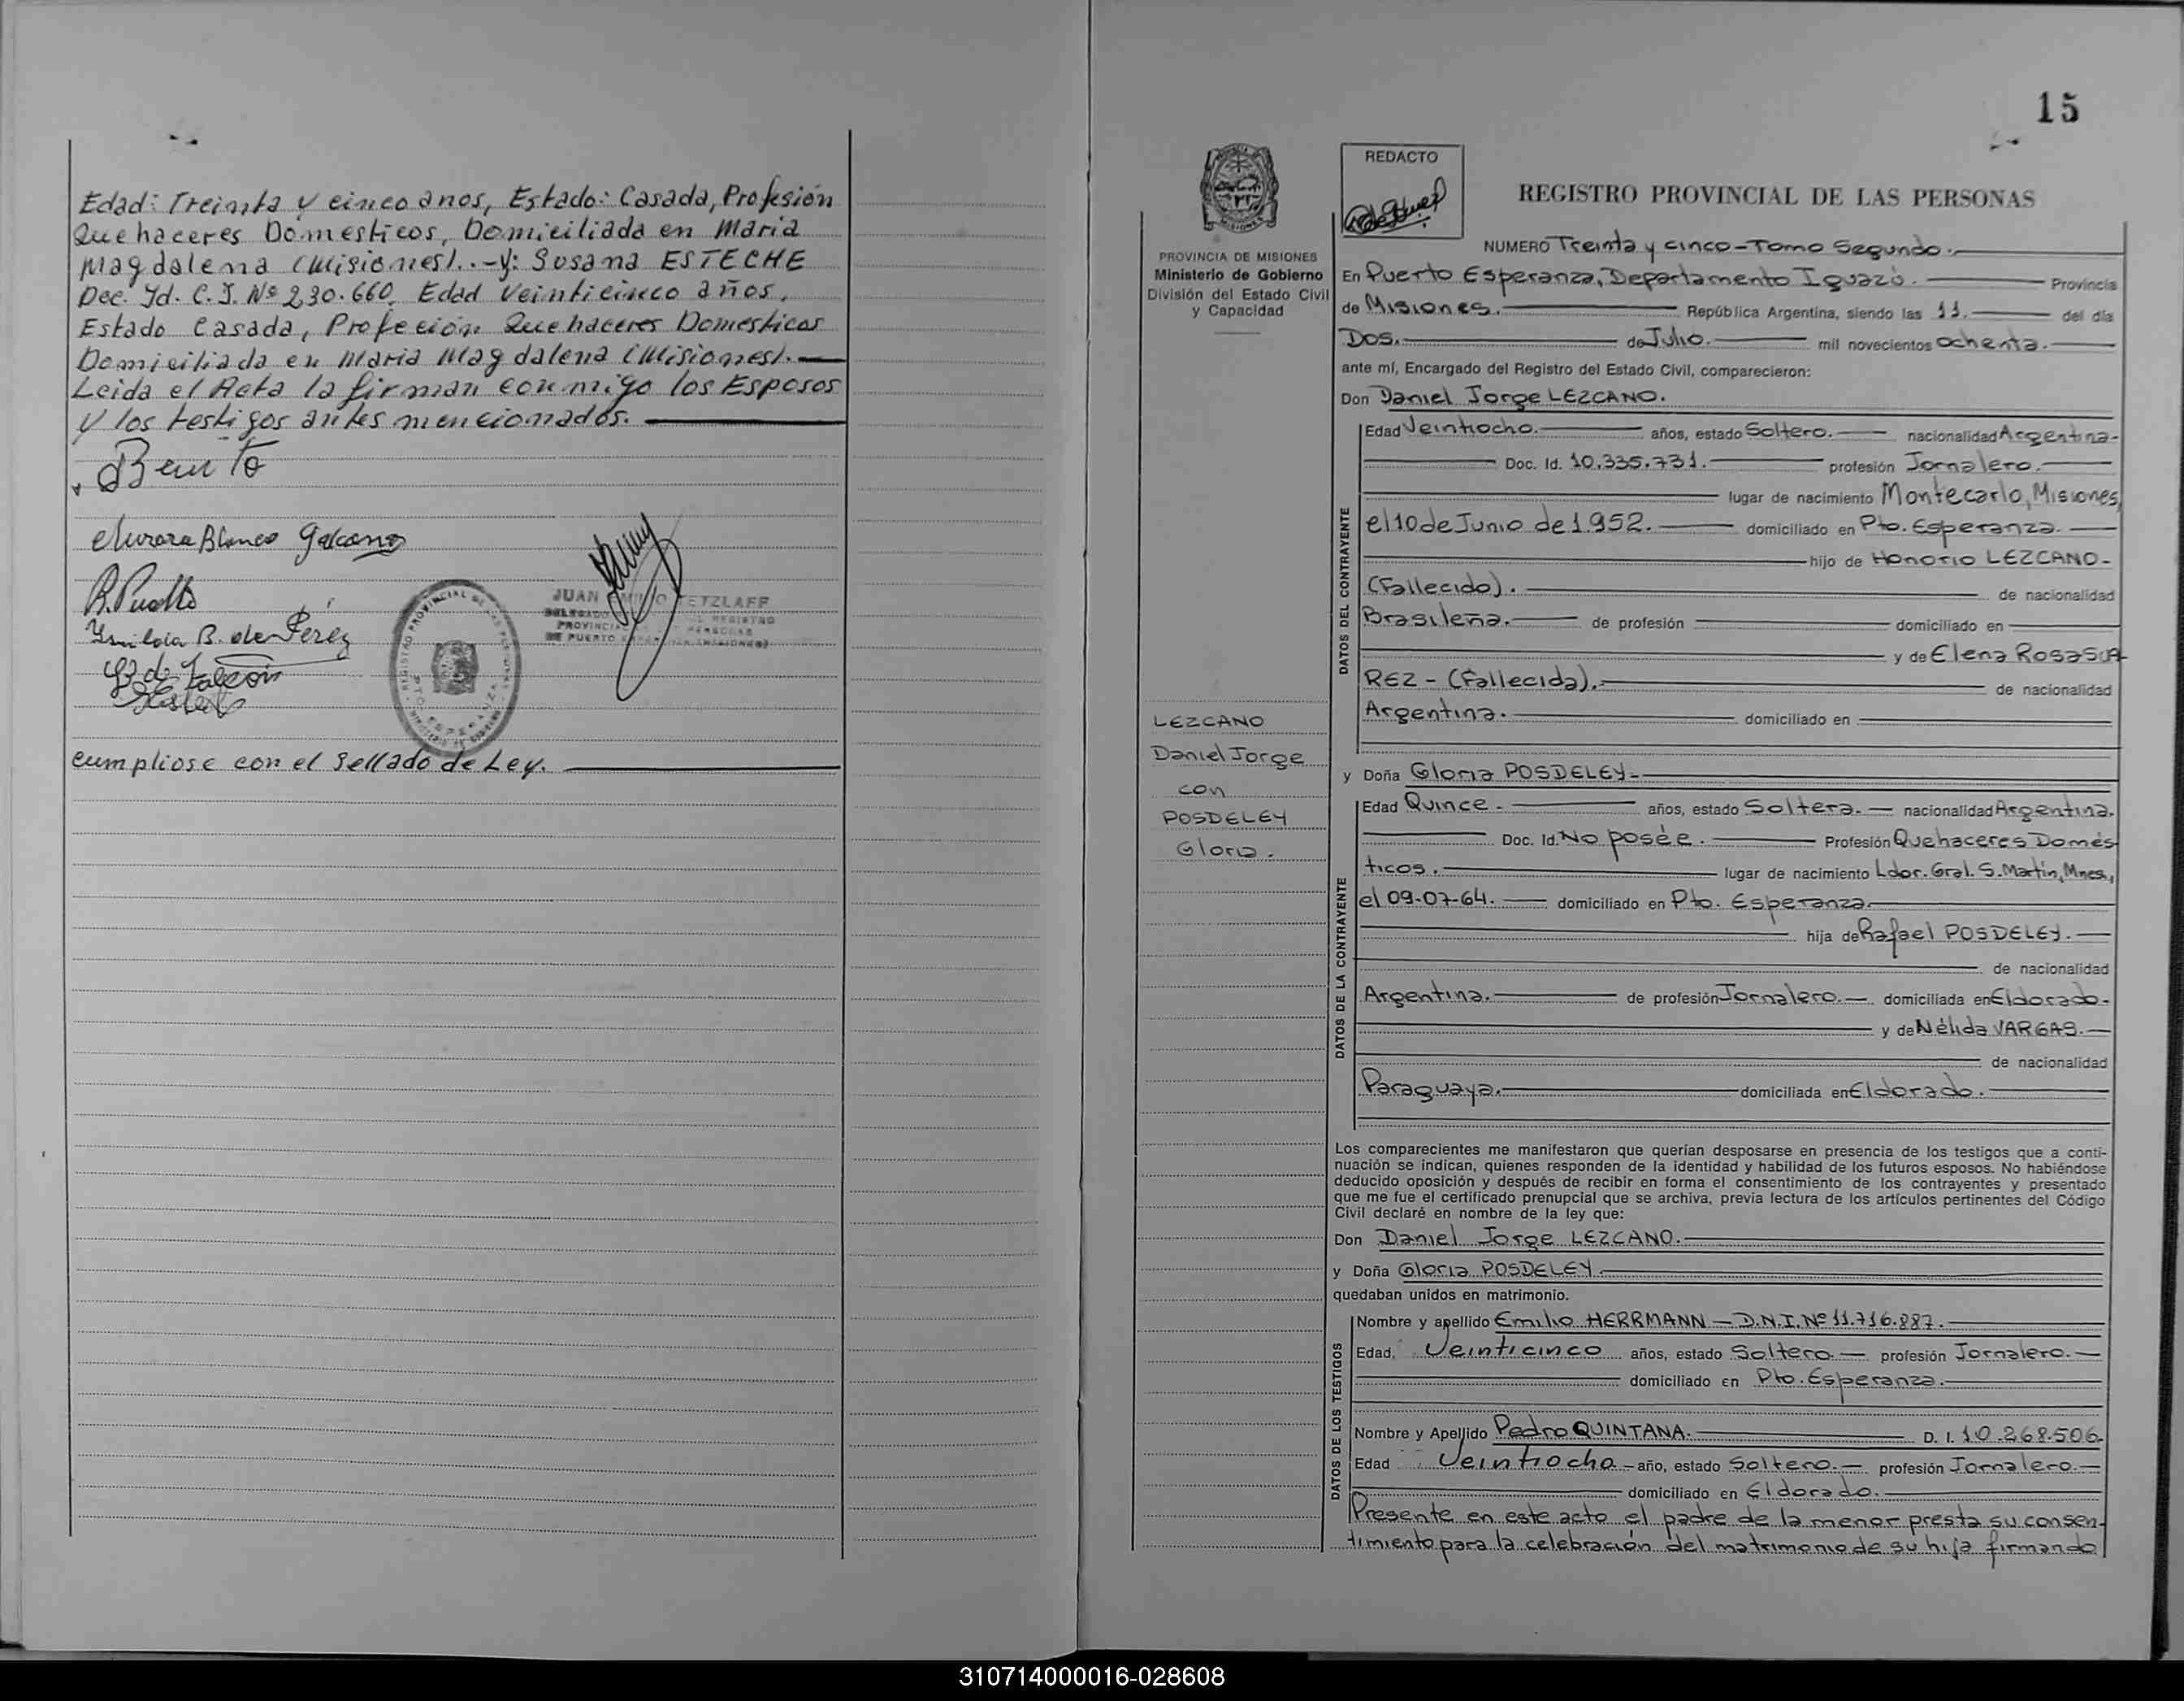 Edad: Treinta y cinco anos, Estado: Casada, Profesión
Quehaceres Domesticos, Domiciliada en Maria
Magdalena (Misiones). .-y: Susana ESTECHE
Doc. Yd. C.I. Nº 230.660, Edad Veinticinco años,
Estado Casada, Profeción Quehaceres Domesticos
Domiciliada en Maria Magdalena (Misiones).
Leida el Acta la firman conmigo los Esposos
y los testigos antes mencionados.
Benito
Aurora Blanco
R.
B. de Pérez
de Falcón
JUAN EMILIO TETZLAFF
cumpliose con el sellado de Ley.
15
REDACTO
REGISTRO PROVINCIAL DE LAS PERSONAS
PROVINCIA DE MISIONES
Ministerio de Gobierno
División del Estado Civil
y Capacidad
NUMERO Treinta y cinco-Tomo Segundo.
En Puerto Esperanza, Departamento Iguazú. Provincia
de Misiones. República Argentina, siendo las 11. del día
Dos. de Julio. mil novecientos ochenta.
ante mí, Encargado del Registro del Estado Civil, comparecieron:
Don Daniel Jorge LEZCANO.
DATOS DEL CONTRAYENTE
Edad Veintiocho. años, estado Soltero. nacionalidad Argentina-
Doc. Id. 10.335.731. profesión Jornalero.
lugar de nacimiento Montecarlo, Misiones,
el 10 de Junio de 1.952. domiciliado en Pto. Esperanza.
hijo de Honorio LEZCANO-
(Fallecido). de nacionalidad
Brasileña. de profesión domiciliado en
y de Elena Rosa SUA
REZ - (Fallecida). de nacionalidad
Argentina. domiciliado en
LEZCANO
Daniel Jorge
con
POSDELEY
Gloria.
y Doña Gloria POSDELEY-
DATOS DE LA CONTRAYENTE
Edad Quince. años, estado Soltera. nacionalidad Argentina.
Doc. Id. No posée. Profesión Quehaceres Domés
ticos. lugar de nacimiento Ldor. Gral. S. Martín, Mnes.,
el 09-07-64. domiciliado en Pto. Esperanza.
hija de Rafael POSDELEY.
de nacionalidad
Argentina. de profesión Jornalero. domiciliada en Eldorado-
y de Nélida VARGAS.
de nacionalidad
Paraguaya. domiciliada en Eldorado.
Los comparecientes me manifestaron que querían desposarse en presencia de los testigos que a conti-
nuación se indican, quienes responden de la identidad y habilidad de los futuros esposos. No habiéndose
deducido oposición y después de recibir en forma el consentimiento de los contrayentes y presentado
que me fue el certificado prenupcial que se archiva, previa lectura de los artículos pertinentes del Código
Civil declaré en nombre de la ley que:
Don Daniel Jorge LEZCANO.
y Doña Gloria POSDELEY.
quedaban unidos en matrimonio.
DATOS DE LOS TESTIGOS
Nombre y apellido Emilio HERRMANN - D.N.I. Nº 11.716.887.
Edad, Veinticinco años, estado Soltero. profesión Jornalero.
domiciliado en Pto. Esperanza.
Nombre y Apellido Pedro QUINTANA. D. I. 10.268.506.
Edad Veintiocho año, estado Soltero. profesión Jornalero.
domiciliado en Eldorado.
Presente en este acto el padre de la menor presta su consen-
timiento para la celebración del matrimonio de su hija firmando
310714000016-028608